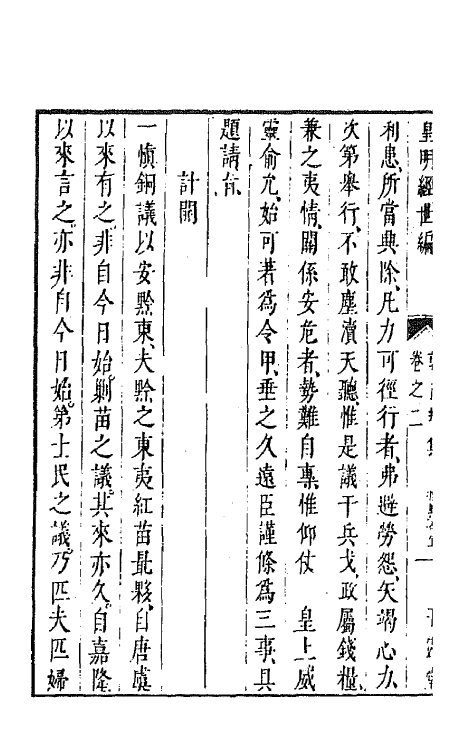 皇明經世編
卷之二
利患所當興除凡力可徑行者弗避勞怨矢竭心力
次第舉行不敢塵瀆天聽惟是議干兵戈政屬錢糧
兼之夷情關係安危者勢難自專惟仰仗　皇上威
靈俞允始可著為令甲垂之久遠臣謹條為三事具
題請旨
計開
一慎銅議以安黔東夫黔之東夷紅苗最夥自唐虞
以來有之非自今日始剿苗之議其來亦久自嘉隆
以來言之亦非自今日始第士民之議乃匹夫匹婦